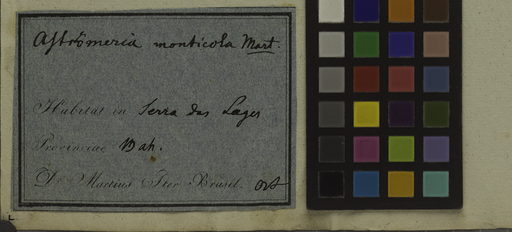 Alströmeria monticola Mart.
Habitat in Serra das Lages
Provinciae Bah.
Dr. Martius Iter Brasil.